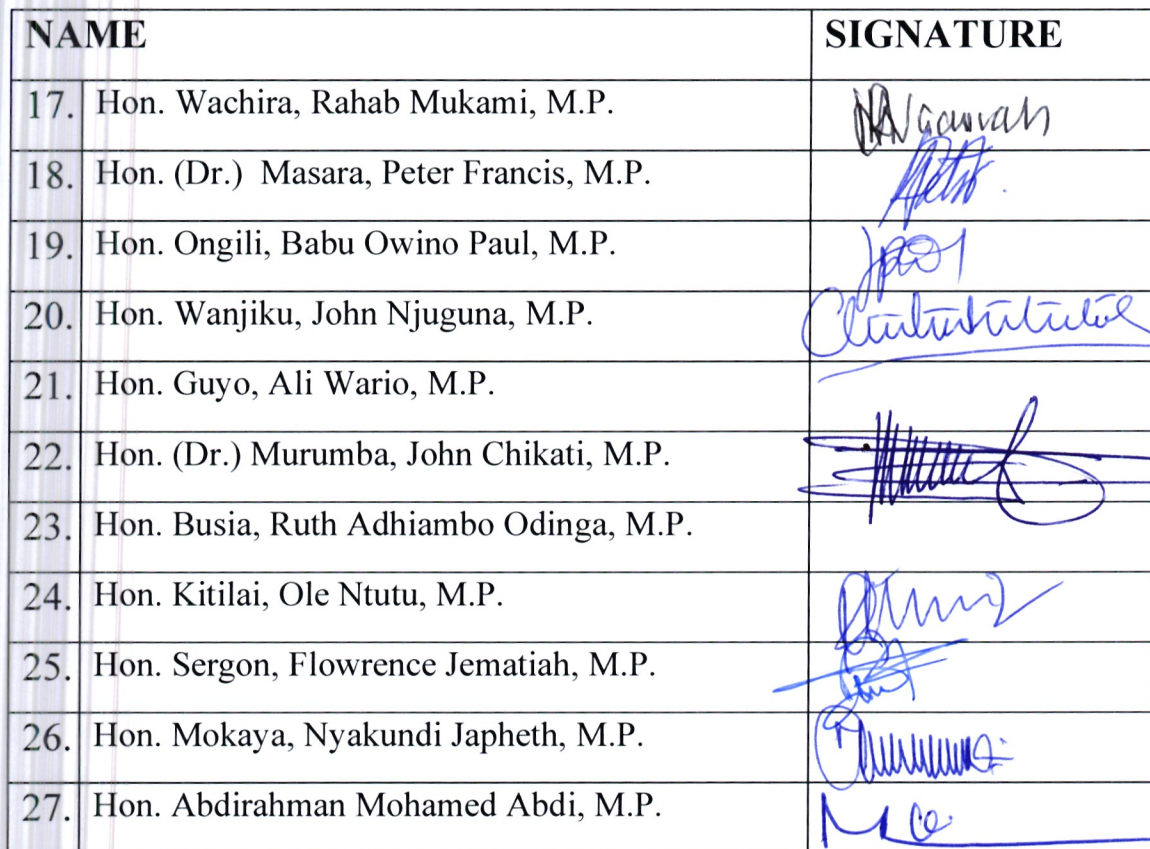 NAME SIGNATURE
17. Hon. Wachira, Rahab Mukami, M.P.
18. Hon. (Dr.) Masara, Peter Francis, M.P.
19. Hon. Ongili, Babu Owino Paul, M.P.
20. Hon. Wanjiku, John Njuguna, M.P.
21. Hon. Guyo, Ali Wario, M.P.
22. Hon. (Dr.) Murumba, John Chikati, M.P.
23. Hon. Busia, Ruth Adhiambo Odinga, M.P.
24. Hon. Kitilai, Ole Ntutu, M.P.
25. Hon. Sergon, Flowrence Jematiah, M.P.
26. Hon. Mokaya, Nyakundi Japheth, M.P.
27. Hon. Abdirahman Mohamed Abdi, M.P.